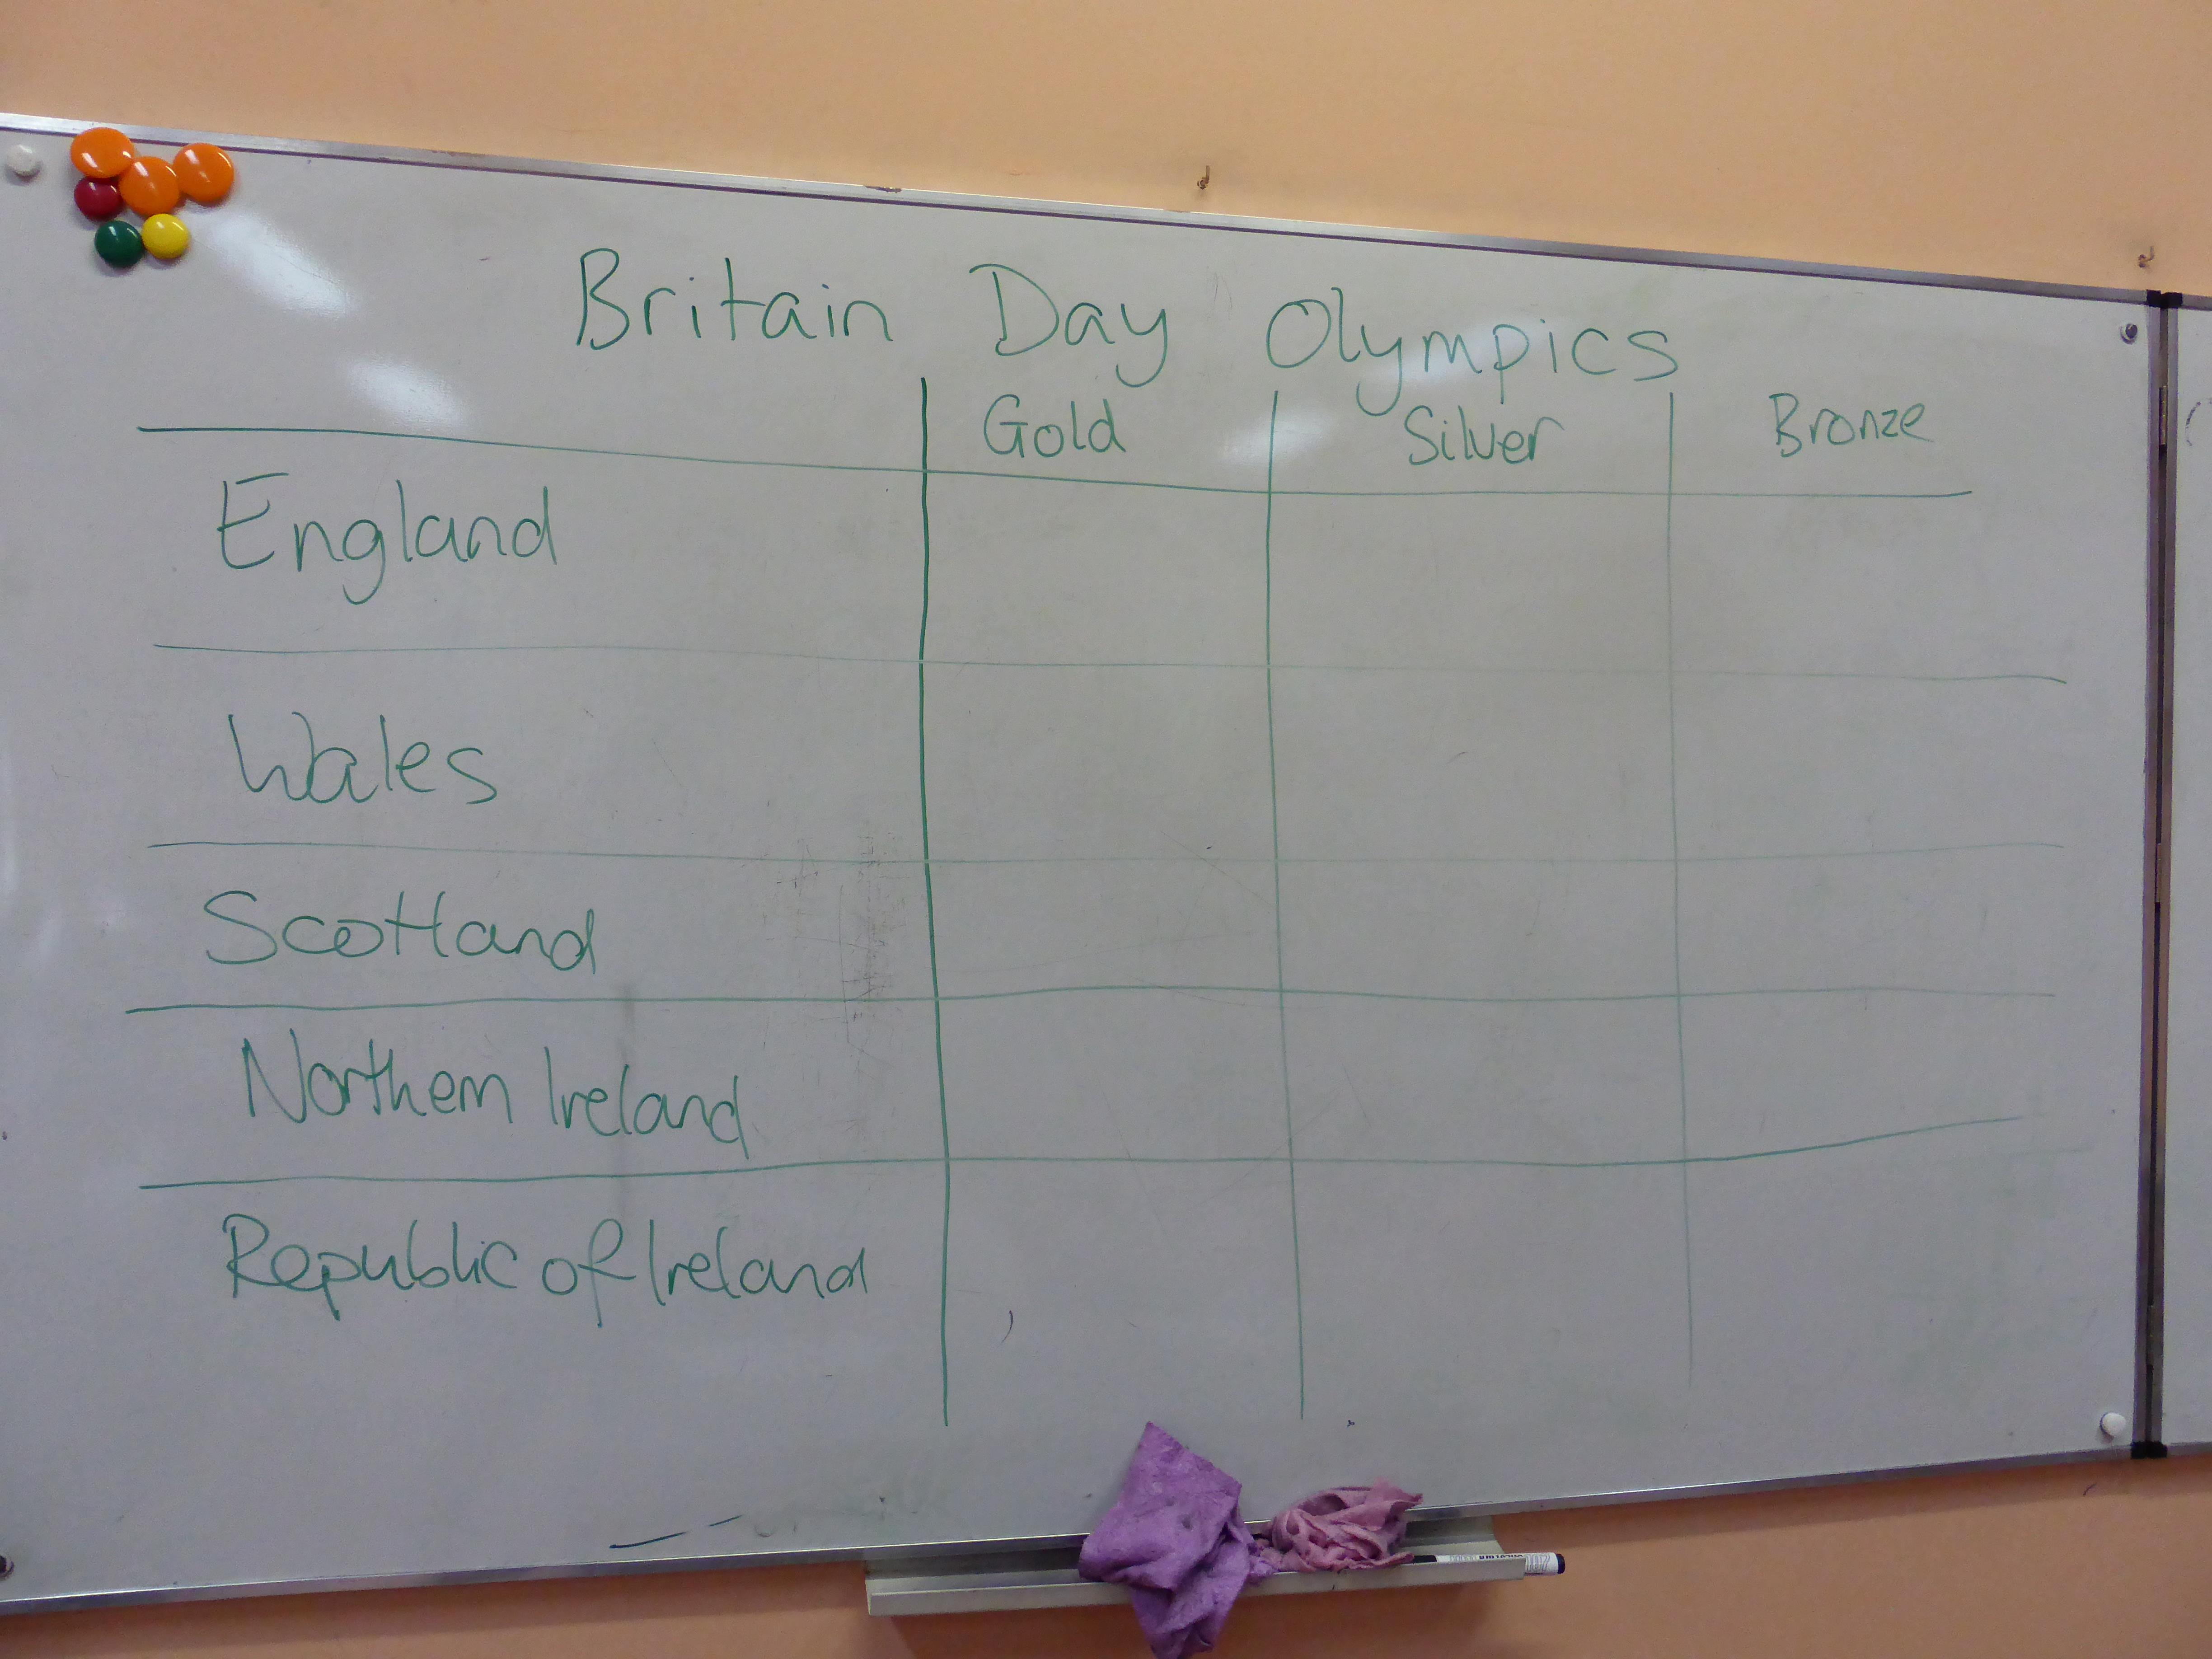 Britain Day Olympics
Gold Silver Bronze
England
Wales
Scotland
Northern Ireland
Republic of Ireland